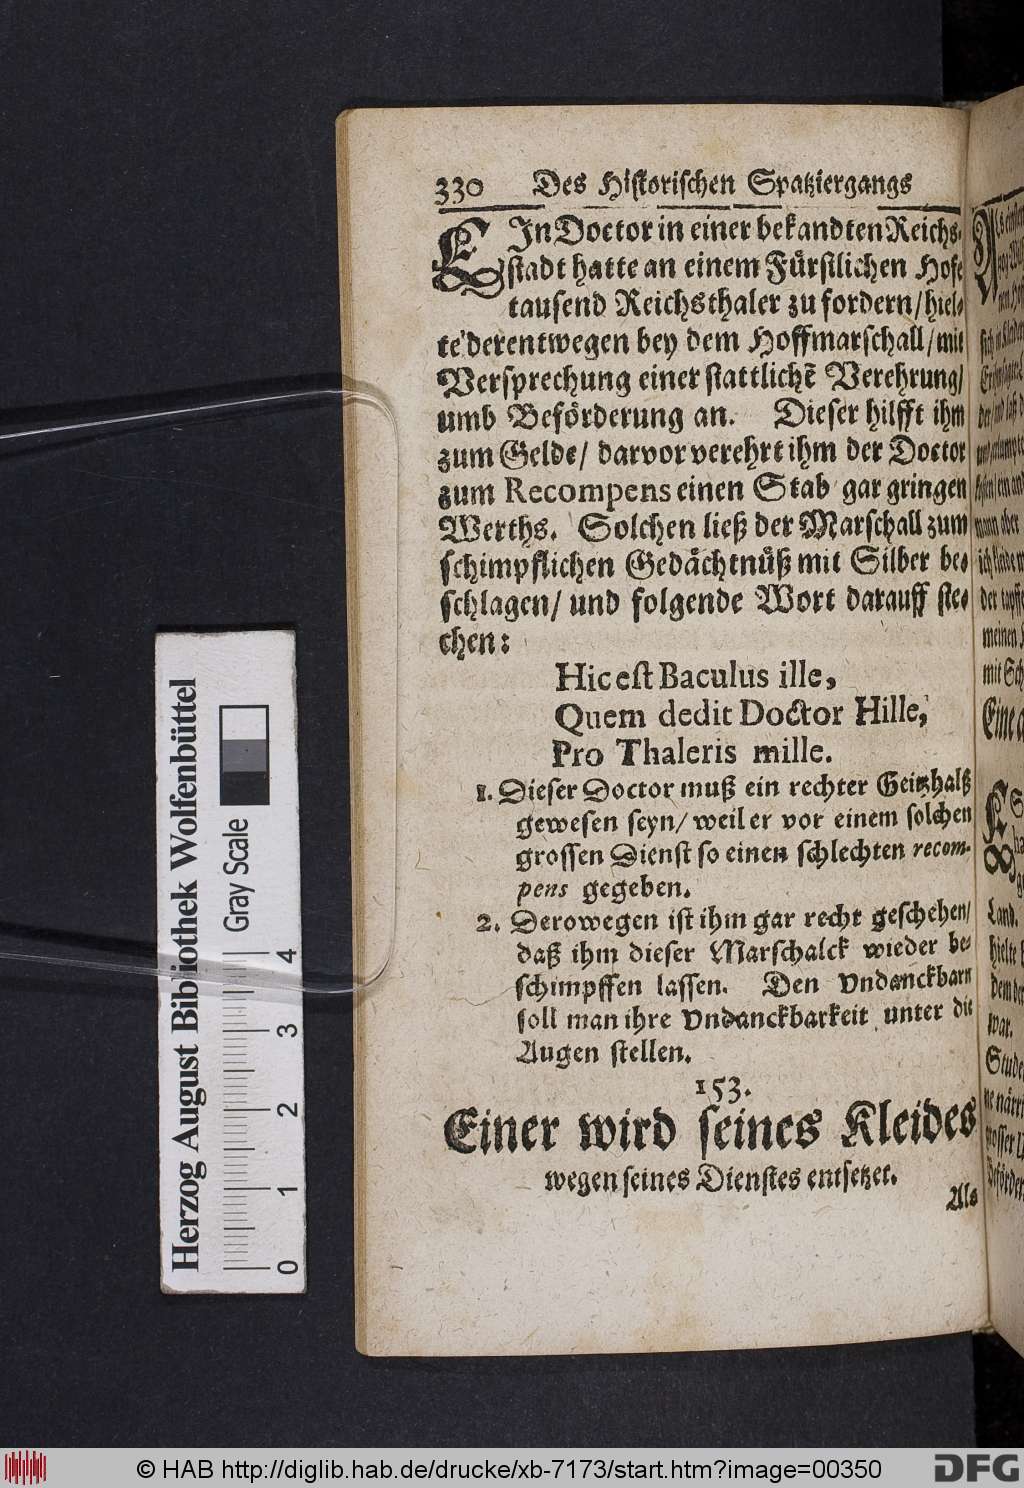 330 Des Historischen Spatziergangs
EIn Doctor in einer bekandten Reichs-
stadt hatte an einem Fürstlichen Hofe
tausend Reichsthaler zu fordern/ hiel-
te derentwegen bey dem Hoffmarschall/ mit
Versprechung einer stattlichẽ Verehrung/
umb Beförderung an. Dieser hilfft ihm
zum Gelde/ darvor verehrt ihm der Doctor
zum Recompens einen Stab gar gringen
Werths. Solchen ließ der Marschall zum
schimpflichen Gedächtnüß mit Silber be-
schlagen/ und folgende Wort darauff ste-
chen:
Hic est Baculus ille,
Quem dedit Doctor Hille,
Pro Thaleris mille.
1. Dieser Doctor muß ein rechter Geitzhalß
gewesen seyn/ weil er vor einem solchen
grossen Dienst so einen schlechten recom-
pens gegeben.
2. Derowegen ist ihm gar recht geschehen/
daß ihm dieser Marschalck wieder be-
schimpffen lassen. Den Vndanckbarn
soll man ihre Vndanckbarkeit unter die
Augen stellen.
153.
Einer wird seines Kleides
wegen seines Dienstes entsetzet.
Als
Herzog August Bibliothek Wolfenbüttel
Gray Scale
0 1 2 3 4
meinen
mit Sch
Eine
Land.
hielte
dem der
war.
Stude
© HAB http://diglib.hab.de/drucke/xb-7173/start.htm?image=00350
DFG